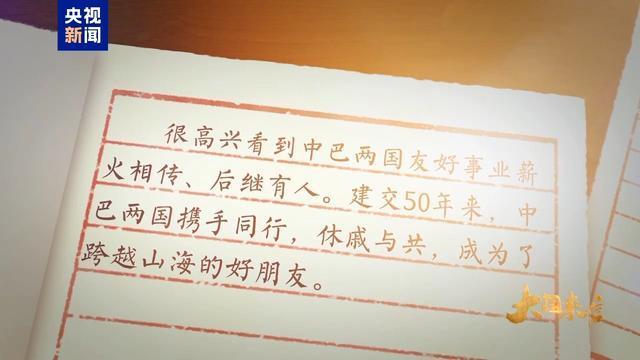 央视新闻
很高兴看到中巴两国友好事业薪
火相传、后继有人。建交50年来，中
巴两国携手同行，休戚与共，成为了
跨越山海的好朋友。
大国来信